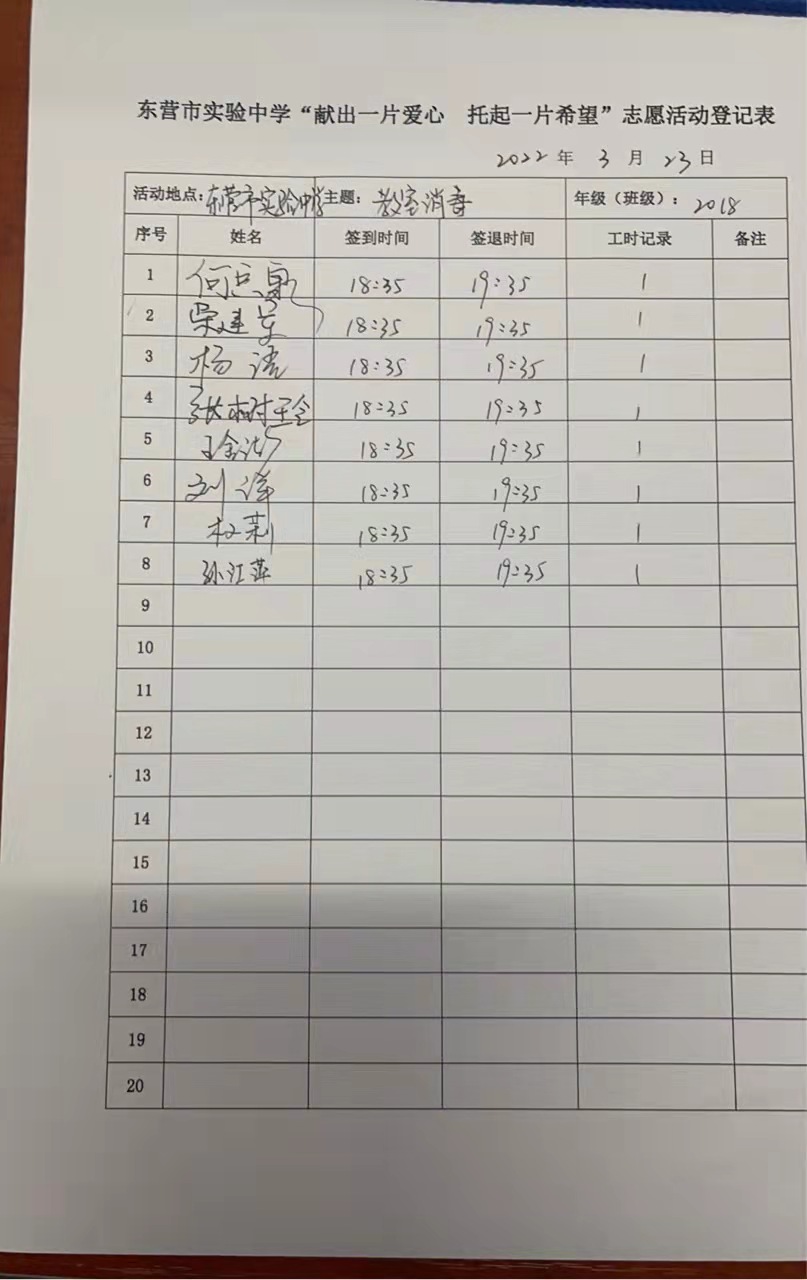 东营市实验中学“献出一片爱心 托起一片希望”志愿活动登记表
2022 年 3 月 23 日
活动地点：东营市实验中学 主题： 教室消毒 年级（班级）： 2018
序号 姓名 签到时间 签退时间 工时记录 备注
1 18:35 19:35 1
2 18:35 19:35 1
3 杨 18:35 19:35 1
4 张 18:35 19:35 1
5 王金 18:35 19:35 1
6 刘洋 18:35 19:35 1
7 权莉 18:35 19:35 1
8 孙江萍 18:35 19:35 1
9
10
11
12
13
14
15
16
17
18
19
20